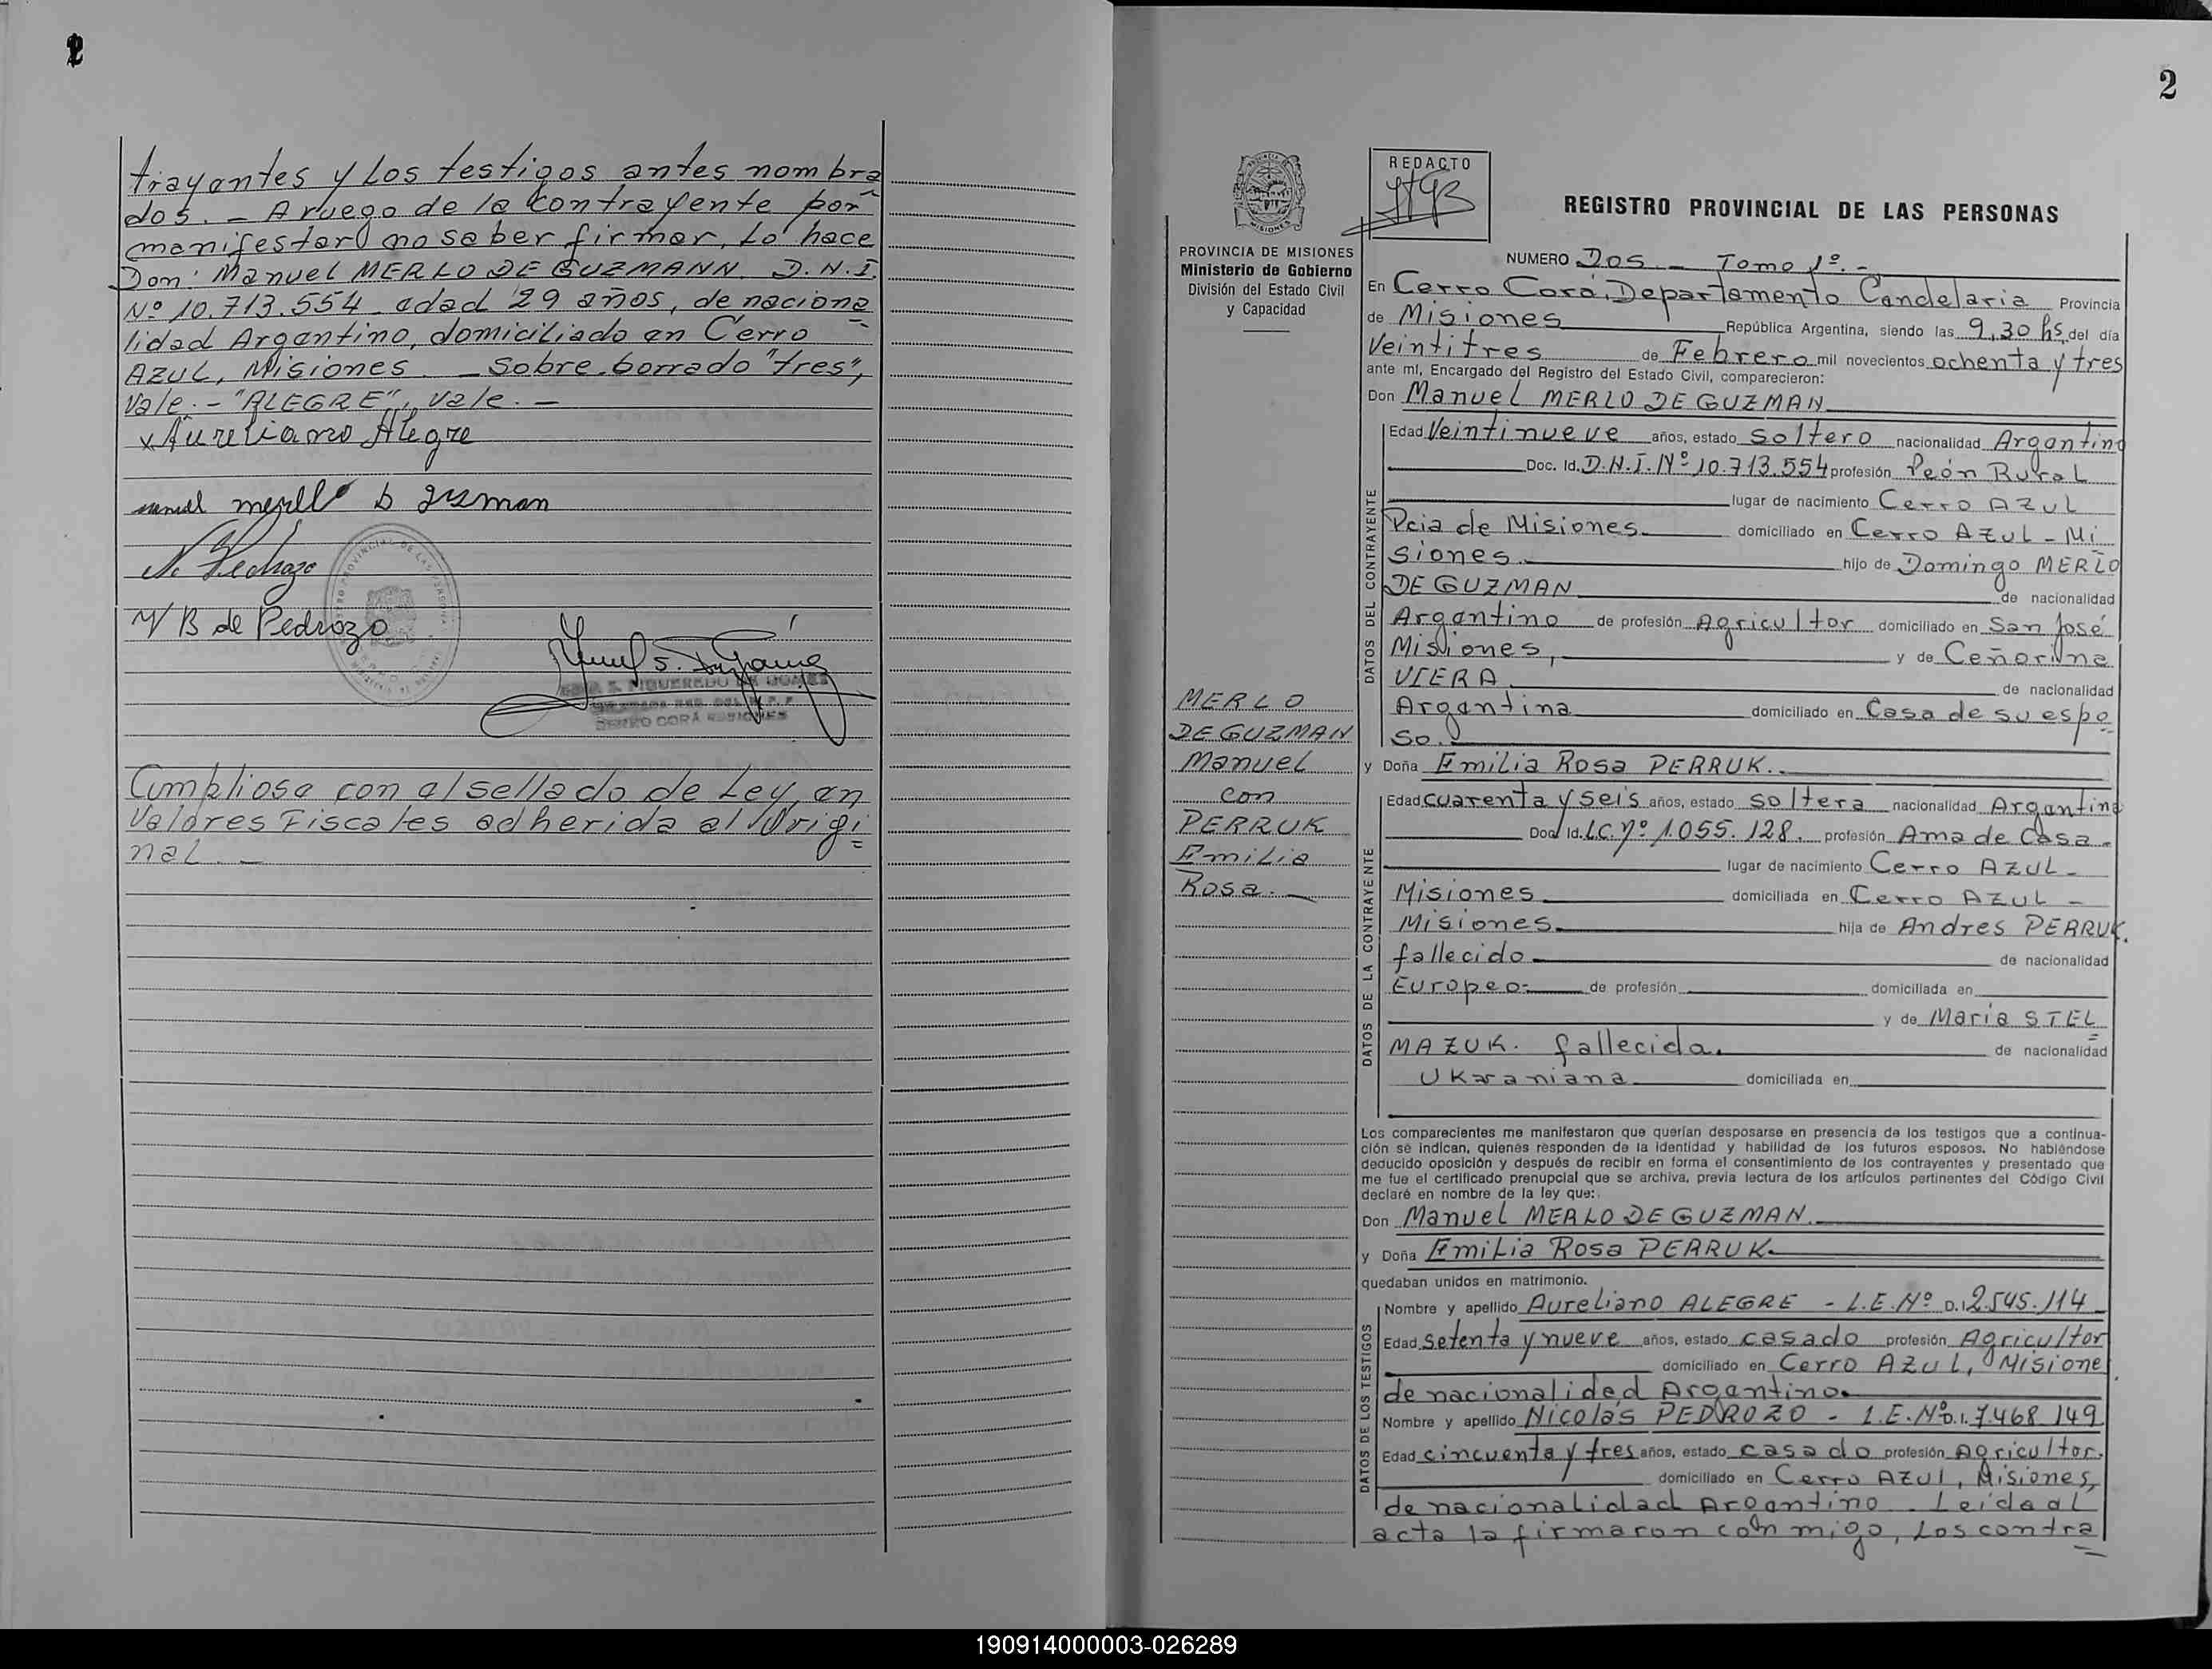 1
2
trayantes y los testigos antes nombra
dos. - A ruego de la contrayente por
manifestar no saber firmar, lo hace
Don: Manuel MERLO DE GUZMANN. D.N.I.
Nº 10.713.554 edad 29 años, de naciona
lidad Argentino, domiciliado en Cerro
AZUL, Misiones. - Sobre borrado "tres",
Vale. - "ALEGRE", vale. -
x Aureliano Alegre
manuel merllo D gusman
N. Pedrozo
M B de Pedrozo
CERRO CORÁ MISIONES
Cumpliose con el sellado de Ley, en
Valores Fiscales adherida al Origi
nal. -
2
PROVINCIA DE MISIONES
Ministerio de Gobierno
División del Estado Civil
y Capacidad
REDACTO
REGISTRO PROVINCIAL DE LAS PERSONAS
NUMERO Dos - Tomo 1º. -
En Cerro Corá, Departamento Candelaria Provincia
de Misiones República Argentina, siendo las 9,30 hs del día
Veintitres de Febrero mil novecientos ochenta y tres
ante mí, Encargado del Registro del Estado Civil, comparecieron:
Don Manuel MERLO DE GUZMAN
DATOS DEL CONTRAYENTE
Edad Veintinueve años, estado Soltero nacionalidad Argentino
Doc. Id. D.N.I. Nº 10.713.554 profesión Peón Rural
lugar de nacimiento Cerro AZUL
Pcia de Misiones domiciliado en Cerro AZUL - Mi
siones hijo de Domingo MERLO
DE GUZMAN de nacionalidad
Argentino de profesión Agricultor domiciliado en San José
Misiones, y de Ceñorina
VIERA de nacionalidad
Argentina domiciliado en Casa de su espo
so.
MERLO
DE GUZMAN
Manuel
con
PERRUK
Emilia
Rosa.
y Doña Emilia Rosa PERRUK.
DATOS DE LA CONTRAYENTE
Edad cuarenta y seis años, estado soltera nacionalidad Argentina
Doc. Id. L.C. Nº 1.055.128. profesión Ama de Casa.
lugar de nacimiento Cerro AZUL -
Misiones domiciliada en Cerro AZUL -
Misiones hija de Andres PERRUK.
fallecido de nacionalidad
Europeo. de profesión domiciliada en
y de María STEL
MAZUK. fallecida. de nacionalidad
Ukraniana domiciliada en
Los comparecientes me manifestaron que querían desposarse en presencia de los testigos que a continua-
ción se indican, quienes responden de la identidad y habilidad de los futuros esposos. No habiéndose
deducido oposición y después de recibir en forma el consentimiento de los contrayentes y presentado que
me fue el certificado prenupcial que se archiva, previa lectura de los artículos pertinentes del Código Civil
declaré en nombre de la ley que:
Don Manuel MERLO DE GUZMAN.
y Doña Emilia Rosa PERRUK.
quedaban unidos en matrimonio.
DATOS DE LOS TESTIGOS
Nombre y apellido Aureliano ALEGRE - L.E. Nº D.I. 2.545.114
Edad setenta y nueve años, estado casado profesión Agricultor
domiciliado en Cerro AZUL, Misione
de nacionalidad Argentino.
Nombre y apellido Nicolás PEDROZO - L.E. Nº D.I. 7.468.149
Edad cincuenta y tres años, estado casado profesión Agricultor.
domiciliado en Cerro AZUL, Misiones,
de nacionalidad Argentino. Leída el
acta la firmaron con migo, los contra
190914000003-026289